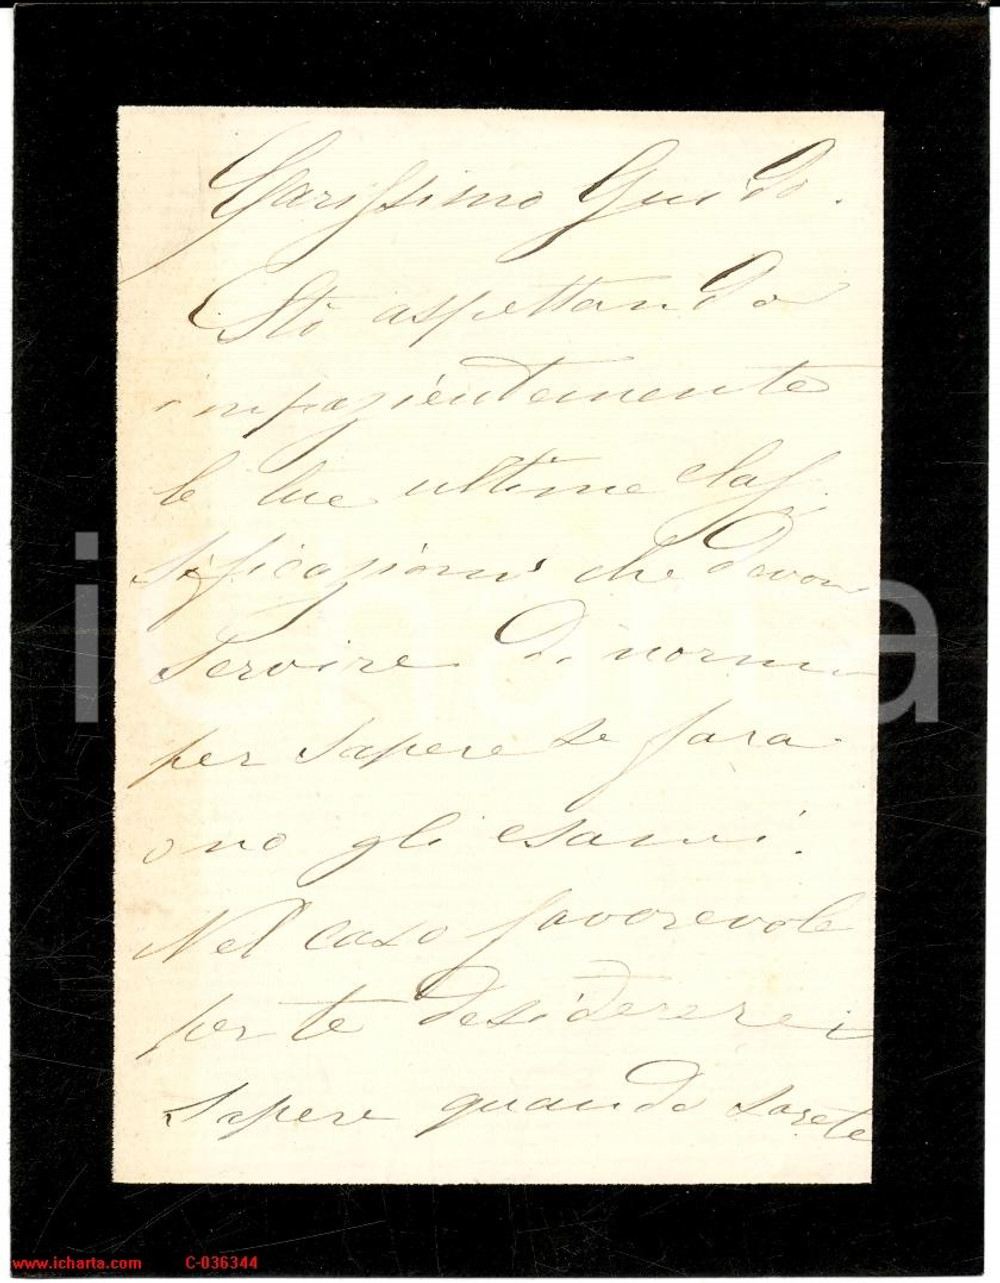 Carissimo Guido.
Stò aspettando
impazientemente
le tue ultime clas
sificazioni che devon
servire di norma
per sapere se fara
nno gli esami.
Nel caso favorevole
per te desidererei
sapere quando sarete
icharta
www.icharta.com C-036344